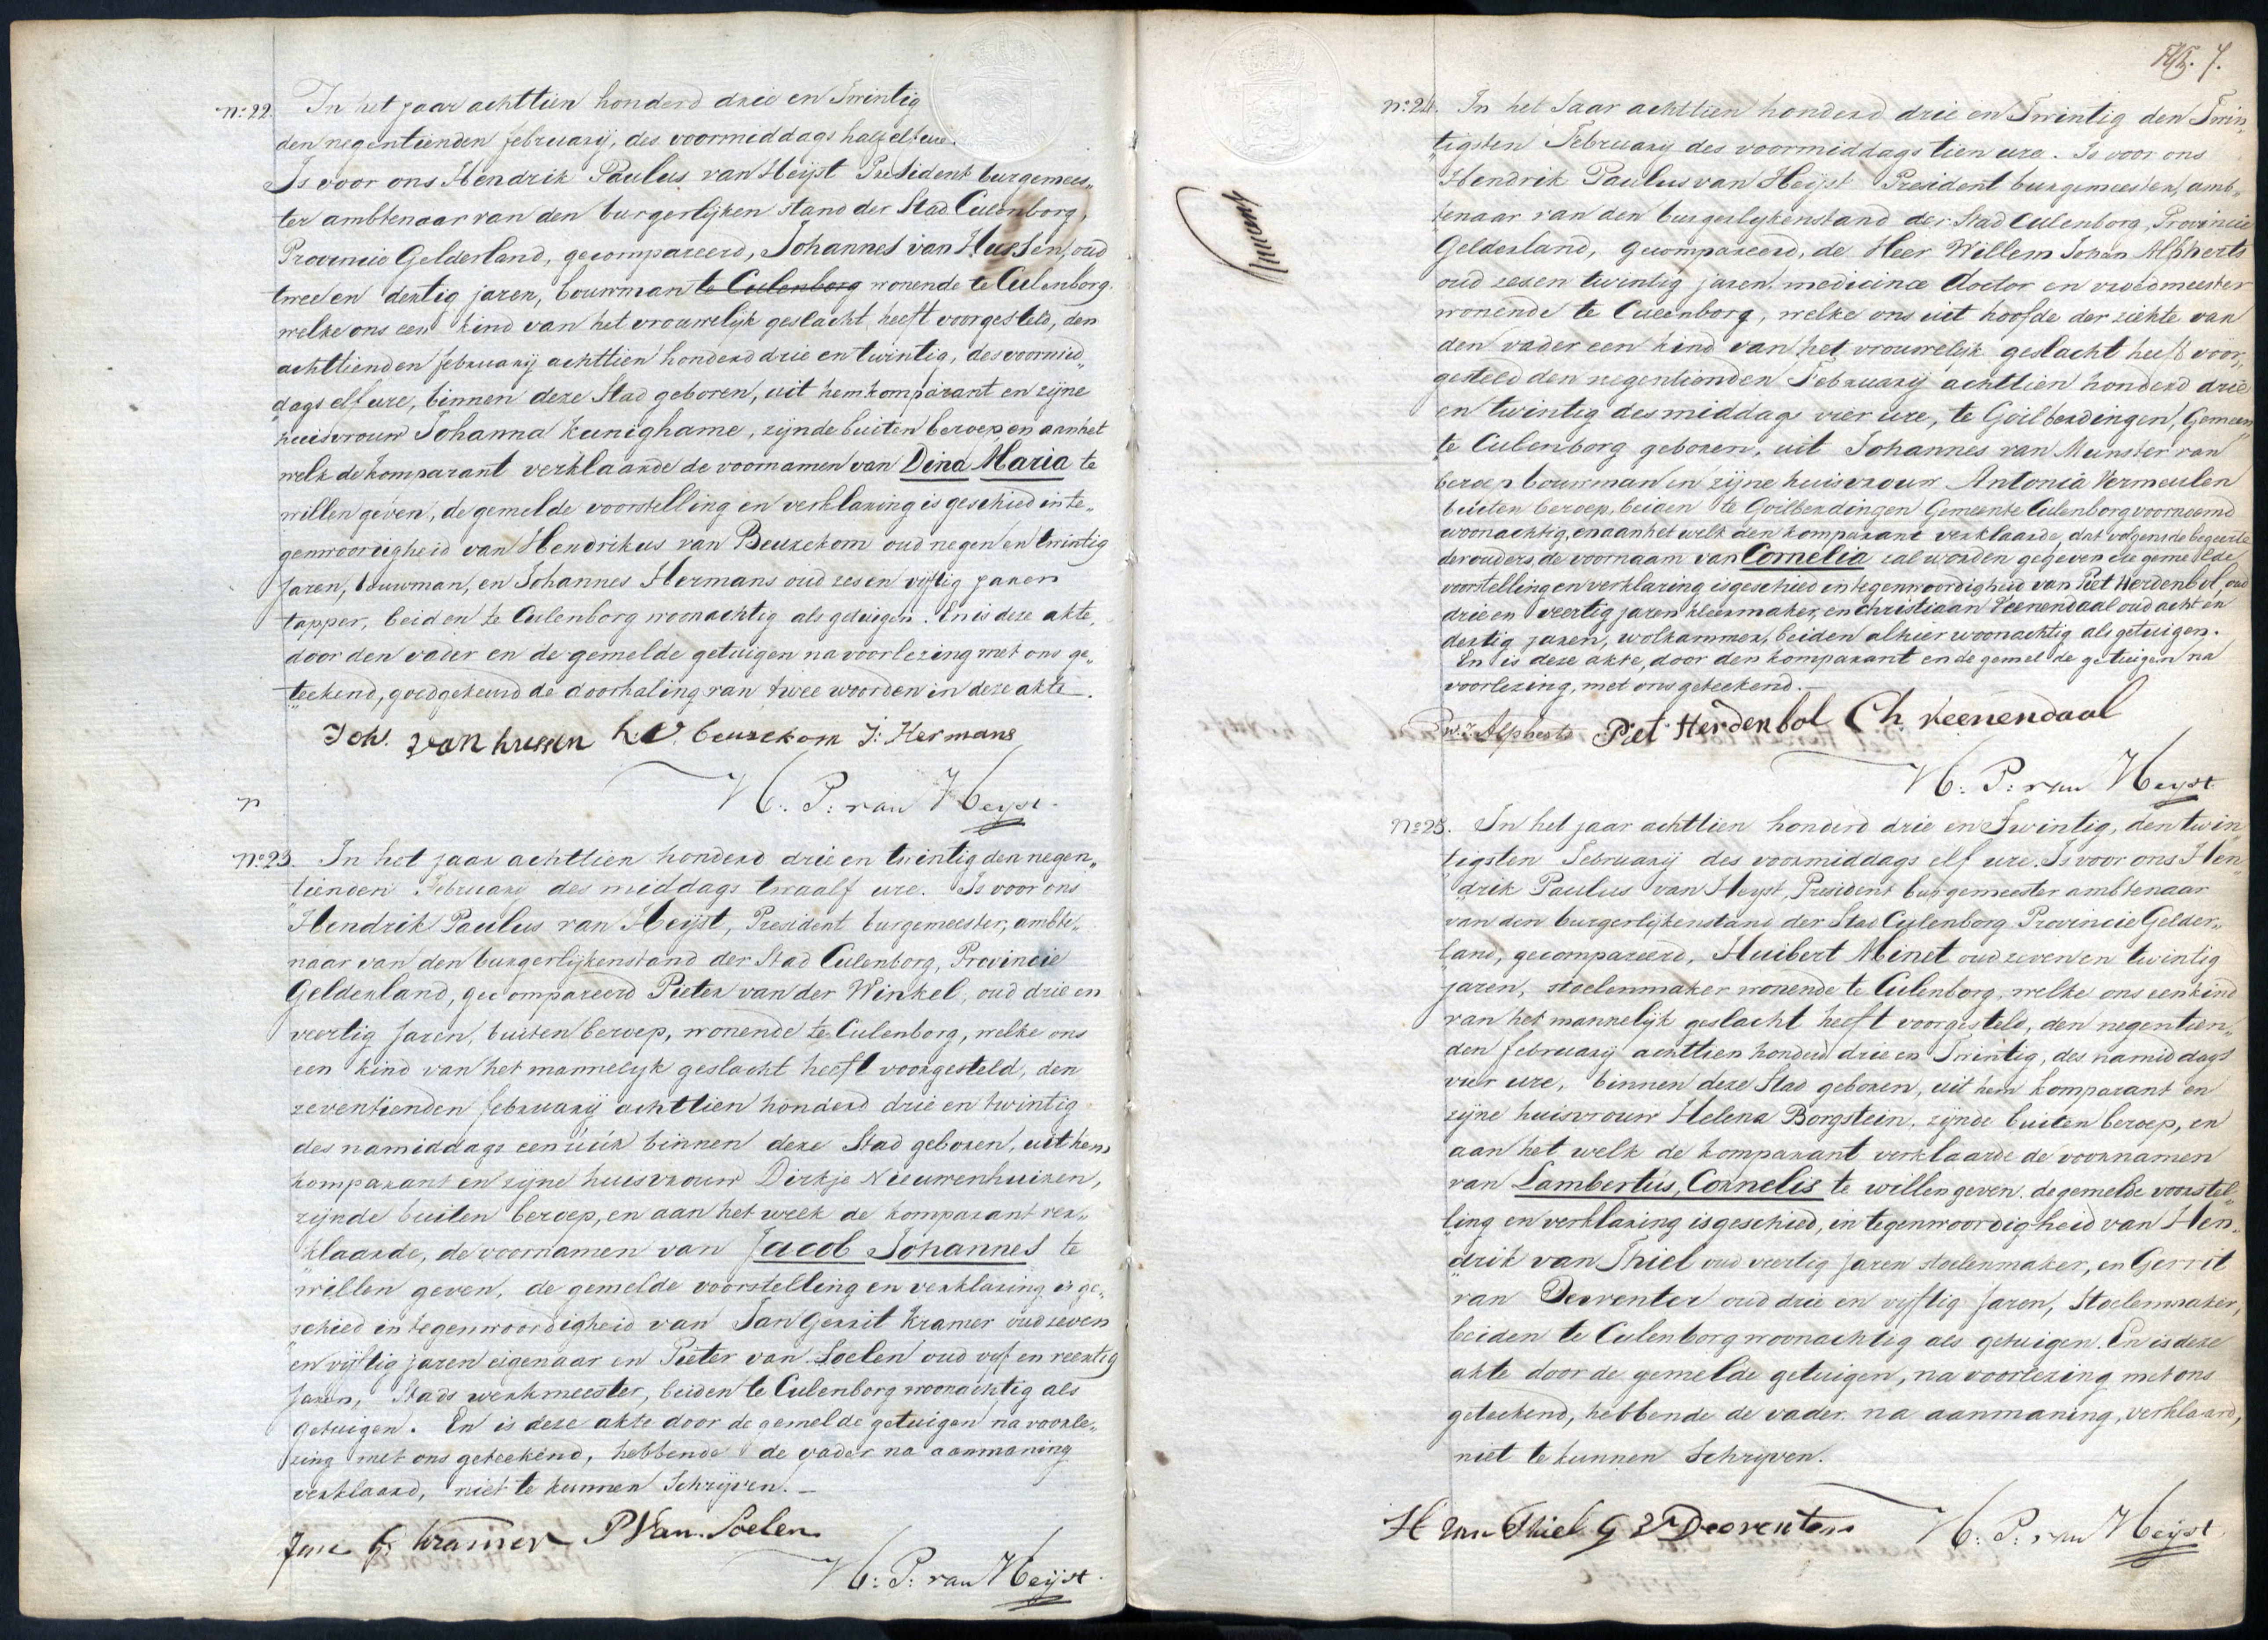 No. 22. In het jaar achttien honderd drie en Twintig
den negentienden februarij, des voormiddags half elf ure.
Is voor ons Hendrik Paulus van Heijst President burgemees„
ter ambtenaar van den burgerlijken stand der Stad Culenborg,
Provincie Gelderland, gecompareerd, Johannes van Hussen, oud
twee en dertig jaren, bouwman te Culenborg wonende te Culenborg.
welke ons een kind van het vrouwelijk geslacht heeft voorgesteld, den
achttienden februarij achttien honderd drie en twintig, des voormid„
„dags elf ure, binnen deze Stad geboren, uit hem komparant en zijne
huisvrouw Johanna Kunighame, zijnde buiten beroep en aan het
welk de komparant verklaarde de voornamen van Dina Maria te
willen geven, de gemelde voorstelling en verklaring is geschied in te„
genwoorigheid van Hendrikus van Beuzekom oud negen en twintig
Jaren, bouwman, en Johannes Hermans oud zes en vijftig jaren
tapper, beiden te Culenborg woonachtig als getuigen. En is deze akte,
door den vader en de gemelde getuigen na voorlezing met ons ge„
„teekend, goedgekeurd de doorhaling van twee woorden in deze akte.
Joh. van hussen h. v. beuzekom J: Hermans
H: P: van Heijst.
No. 23. In het jaar achttien honderd drie en twintig den negen„
„tienden Februarij des middags twaalf ure. Is voor ons
Hendrik Paulus van Heijst, President burgemeester, ambte„
naar van den burgerlijkenstand der Stad Culenborg, Provincie
Gelderland, gecompareerd Pieter van der Winkel, oud drie en
veertig Jaren, buiten beroep, wonende te Culenborg, welke ons
een kind van het mannelijk geslacht heeft voorgesteld, den
zeventienden februarij achttien honderd drie en twintig
des namiddags een úúr binnen deze Stad geboren, uit hem
komparant en zijne huisvrouw Dirkje Nieuwenhuizen,
zijnde buiten beroep, en aan het welk de komparant ver„
„klaarde, de voornamen van Jacob Johannes te
willen geven, de gemelde voorstelling en verklaring is ge„
„schied in tegenwoordigheid van Jan Gerrit Kramer oud zeven
en vijftig jaren eigenaar en Pieter van Soelen oud vijf en veertig
Jaren, Stads werkmeester, beiden te Culenborg woonachtig als
getuigen. En is deze akte door de gemelde getuigen na voorle„
zing met ons geteekend, hebbende de vader na aanmaning
verklaard, niet te kunnen Schrijven.
Jan G. Kramer P Van Soelen
H: P: van Heijst.
7.
No. 24. In het Jaar achttien honderd drie en Twintig den Twin„
„tigsten Februarij des voormiddags tien ure. Is voor ons
Hendrik Paulus van Heijst President burgemeester, amb„
tenaar van den burgerlijkenstand der Stad Culenborg, Provincie
Gelderland, gecompareerd, de Heer Willem Johan Alpherts
oud zes en twintig jaren, medicinæ doctor en vroedmeester
wonende te Culenborg, welke ons uit hoofde der ziekte van
den vader een kind van het vrouwelijk geslacht heeft voor„
gesteld den negentienden Februarij achttien honderd drie
en twintig des middags vier ure, te Goilberdingen, Gemeen„
te Culenborg geboren, uit Johannes van Munster van
beroep bouwman en zijne huisvrouw Antonia Vermeulen
buiten beroep, beiden te Goilberdingen Gemeente Culenborg voornoemd
woonachtig, en aan het welk den komparant verklaarde, dat volgens de begeerte
der ouders, de voornaam van Cornelia zal worden gegeven de gemelde
voorstelling en verklaring is geschied in tegenwoordigheid van Piet Herdenbol, oud
drie en veertig jaren kleermaker, en Christiaan Veenendaal oud acht en
dertig jaren, wolkammer, beiden alhier woonachtig als getuigen.
En is deze akte, door den komparant en de gemelde getuigen na
voorlezing, met ons geteekend.
W. J. Alpherts Piet Herdenbol Ch. Veenendaal
H: P: van Heijst.
No. 25. In het jaar achttien honderd drie en Twintig, den twin
„tigsten Februarij des voormiddags elf ure. Is voor ons Hen„
„drik Paulus van Heijst, President burgemeester ambtenaar
van den burgerlijkenstand der Stad Culenborg Provincie Gelder„
„land, gecompareerd, Huibert Minet oud zeven en twintig
jaren, stoelenmaker wonende te Culenborg, welke ons een kind
van het mannelijk geslacht heeft voorgesteld, den negentien„
den februarij achttien honderd drie en Twintig, des namiddags
vier ure, binnen deze Stad geboren, uit hem komparant en
zijne huisvrouw Helena Borgstein, zijnde buiten beroep, en
aan het welk de komparant verklaarde de voornamen
van Lambertús, Cornelis te willen geven. de gemelde voorstel„
„ling en verklaring is geschied, in tegenwoordigheid van Hen„
„drik van Thiel oud veertig Jaren stoelenmaker, en Gerrit
van Deventer oud drie en vijftig Jaren, Stoelenmaker,
beiden te Culenborg woonachtig als getuigen. En is deze
akte door de gemelde getuigen, na voorlezing met ons
geteekend, hebbende de vader na aanmaning, verklaard,
niet te kunnen Schrijven.
H van Thiel G v Deeventer H: P: van Heijst.